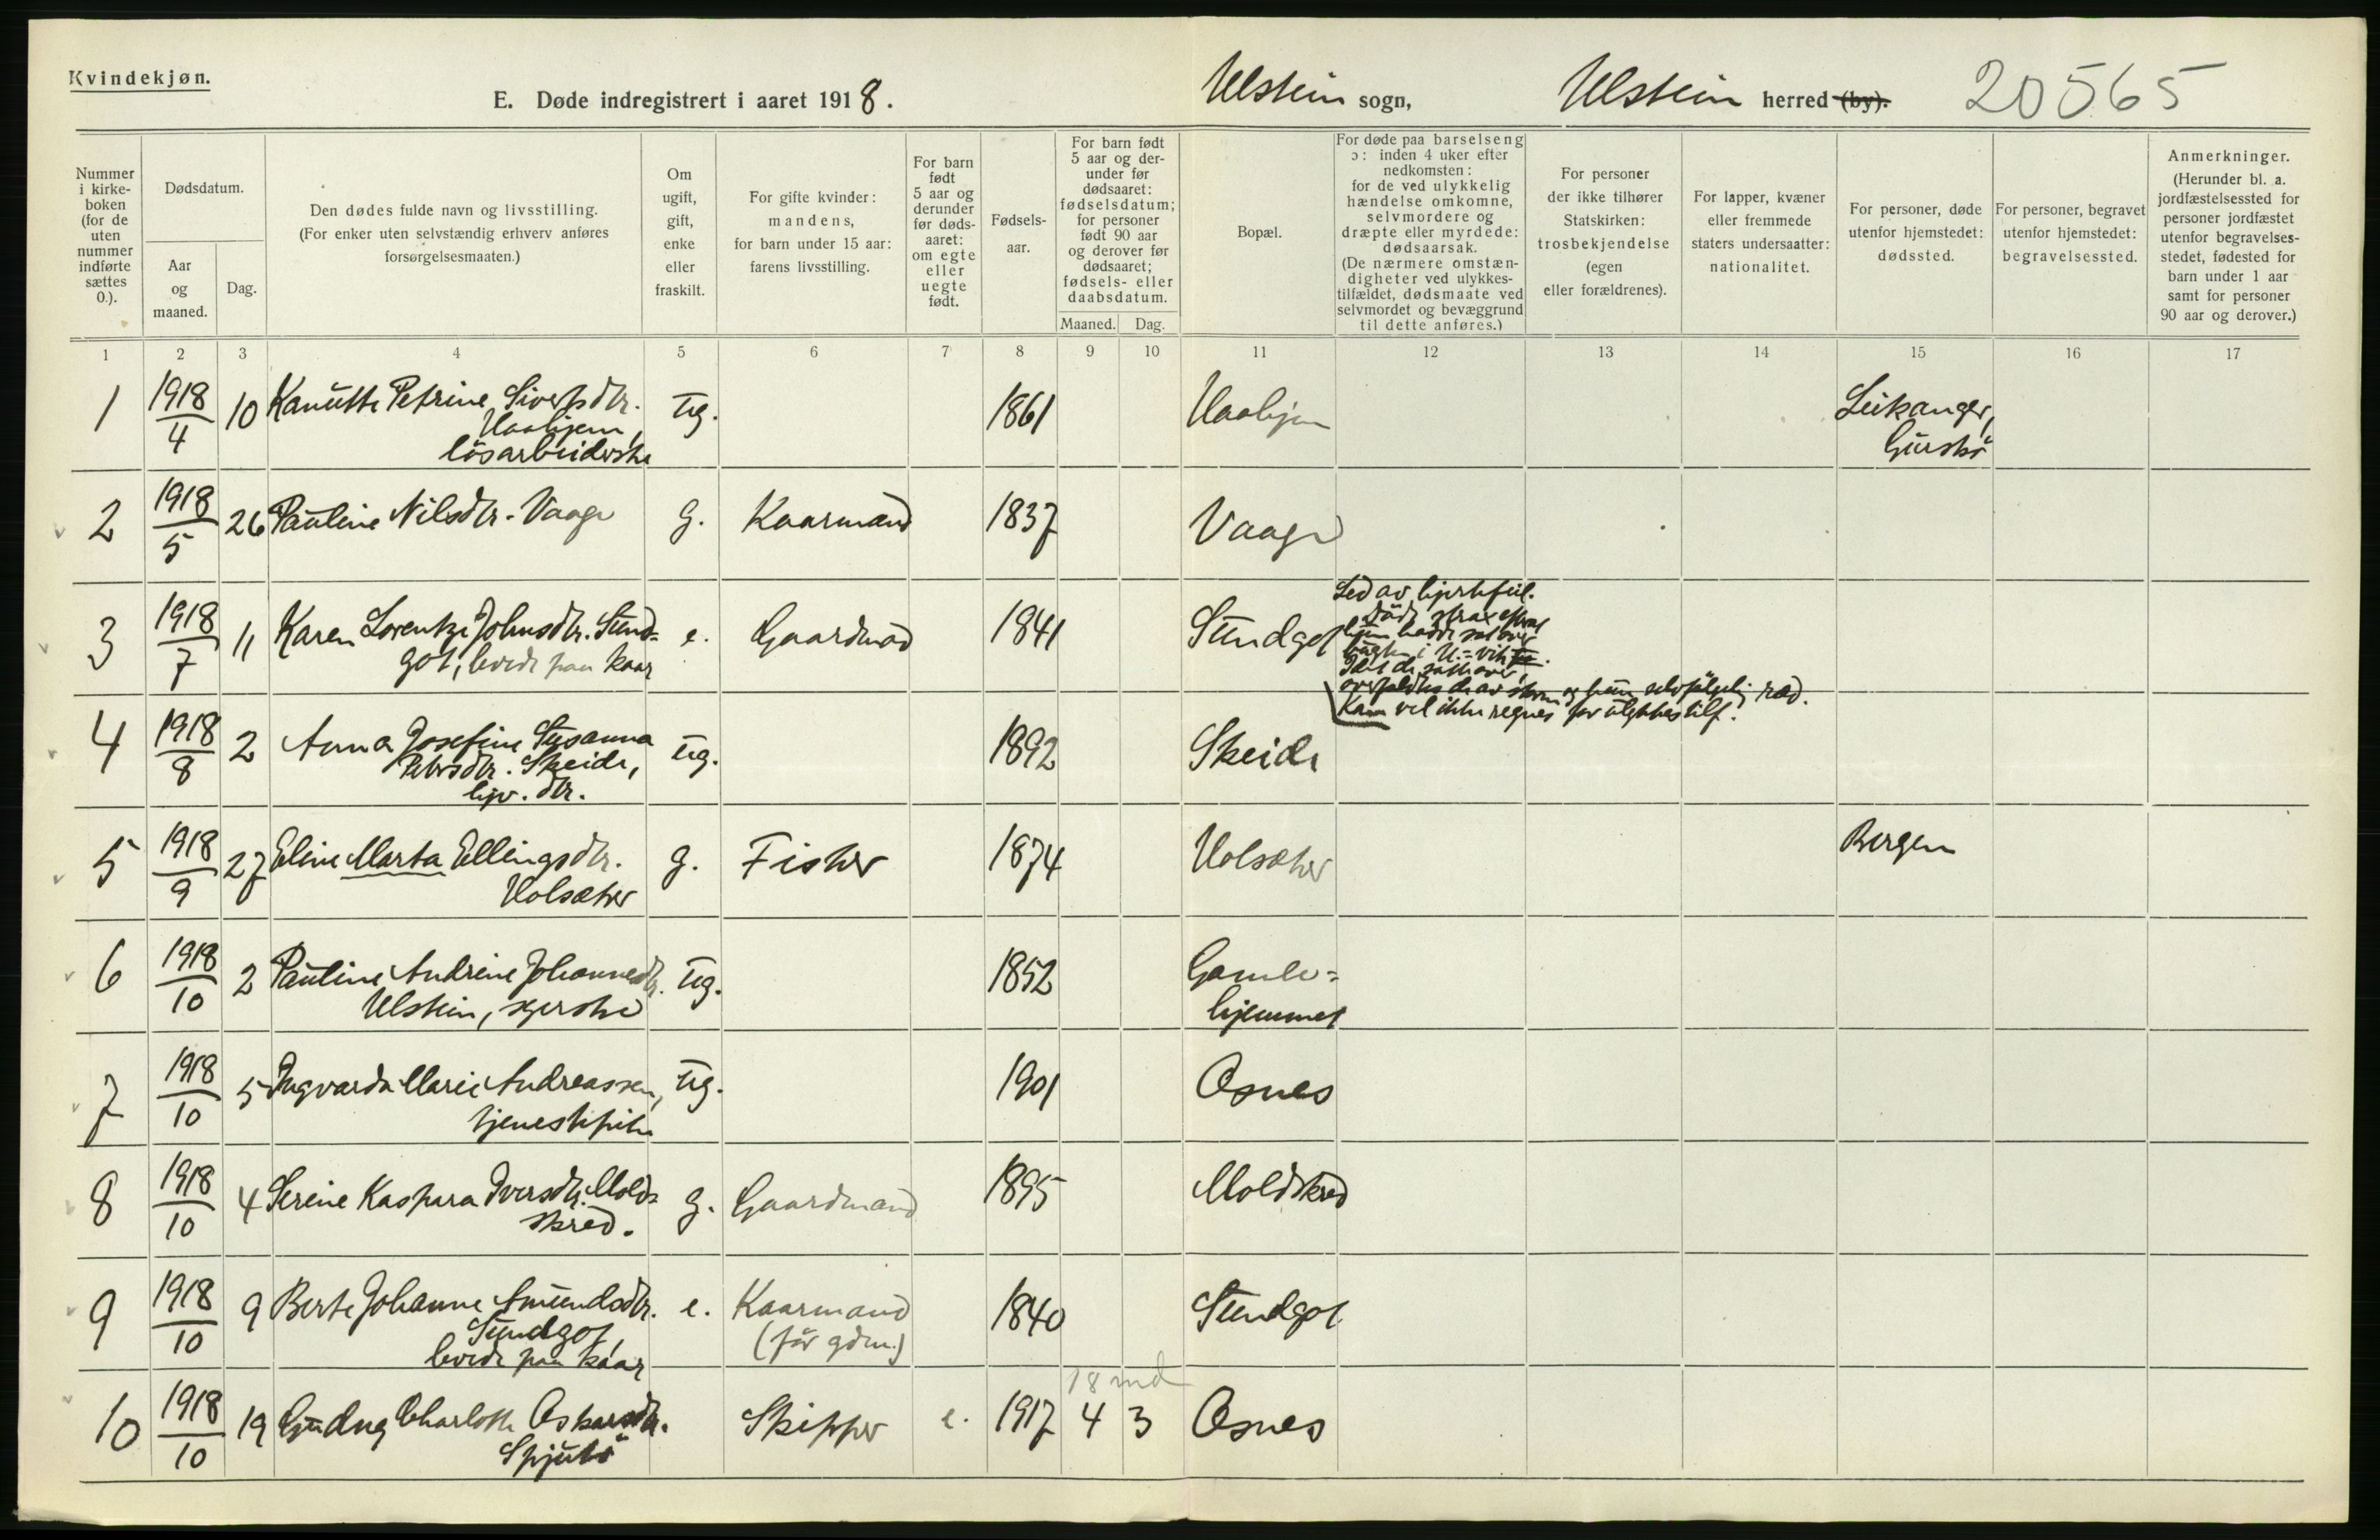 Kvindekjøn.
E. Døde indregistrert i aaret 1918.
Ulstein sogn,
Ulstein herred (by).
20565
Nummer i kirke-boken (for de uten nummer indførte sættes 0.).
Dødsdatum.
Aar og maaned.
Dag.
Den dødes fulde navn og livsstilling.
(For enker uten selvstændig erhverv anføres forsørgelsesmaaten.)
Om ugift, gift, enke eller fraskilt.
For gifte kvinder: mandens, for barn under 15 aar: farens livsstilling.
For barn født 5 aar og derunder før døds-aaret: om egte eller uegte født.
Fødsels-aar.
For barn født 5 aar og der-under før dødsaaret: fødselsdatum; for personer født 90 aar og derover før dødsaaret; fødsels- eller daabsdatum.
Maaned.
Dag.
Bopæl.
For døde paa barselseng ɔ: inden 4 uker efter nedkomsten: for de ved ulykkelig hændelse omkomne, selvmordere og dræpte eller myrdede: dødsaarsak.
(De nærmere omstæn-digheter ved ulykkes-tilfældet, dødsmaate ved selvmordet og bevæggrund til dette anføres.)
For personer der ikke tilhører Statskirken: trosbekjendelse (egen eller forældrenes).
For lapper, kvæner eller fremmede staters undersaatter: nationalitet.
For personer, døde utenfor hjemstedet: dødssted.
For personer, begravet utenfor hjemstedet: begravelsessted.
Anmerkninger.
(Herunder bl. a. jordfæstelsessted for personer jordfæstet utenfor begravelses-stedet, fødested for barn under 1 aar samt for personer 90 aar og derover.)
1 2 3 4 5 6 7 8 9 10 11 12 13 14 15 16 17
1 1918/4 10 Kanutte Petrine Sivertsdtr. ug. 1861 Haahjem Leikanger,
Haahjem, Gurskö
lösarbeiderske
2 1918/5 26 Pauline Nilsdtr. Vaage g. Kaarmand 1837 Vaage
3 1918/7 11 Karen Lorentze Johnsdtr. Sund= e. Gaardmad 1841 Sundgot
got, levede paa kaar
Led av hjertefeil.
Döde strax efterat
hun hadde sat over
i U.=vik
Idet de satte over,
overfaldtes de av storm og hun selvfölgelig ræd.
Kan vel ikke regnes for ulykkestilf.
4 1918/8 2 Anna Josefine Susanna ug. 1892 Skeide
Petersdtr. Skeide,
hjv. dtr.
5 1918/9 27 Eline Marta Ellingsdtr. g. Fisker 1874 Holsæter Bergen
Holsæter
6 1918/10 2 Pauline Andrine Johannesdtr. ug. 1852 Gamle=
Ulstein, syerske hjemmet
7 1918/10 5 Ingvarda Marie Andreassen, ug. 1901 Osnes
tjenestepike
8 1918/10 4 Serine Kaspara Iversdtr. Mold= g. Gaardmand 1895 Moldskred
skred.
9 1918/10 9 Berte Johanne Amundsdtr. e. Kaarmand 1840 Sundgot
Sundgot, (för gdm.)
levede paa kaar
18 md
10 1918/10 19 Gudny Charlotte Oskarsdtr. Skipper e. 1917 4 3 Osnes
Spjutö